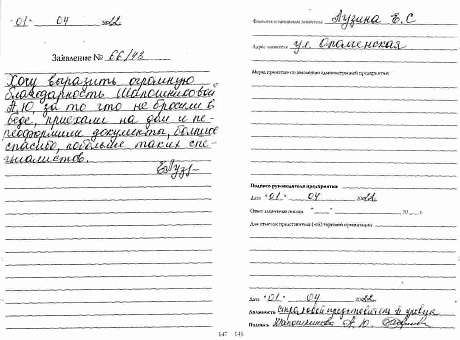 "01" 04 2022
Заявление № 66/43
Хочу выразить огромную
благодарность Шапошниковой
А.Ю, за то что не бросили в
беде, приехали на дом и пе-
реоформили документы, большое
спасибо, побольше таких спе-
циалистов.
Фамилия и инициалы заявителя Лузина Е.С
Адрес заявителя ул. Ополченская
Меры, принятые по заявлению администрацией предприятия:
Подпись руководителя предприятия
Дата "01" 04 2022
Ответ заявителю послан "___" 20 г.
Для отметок представителя (-ей) торговой организации
Дата "01" 04 2022
Должность Страховой представитель 1 уровня
Подпись Шапошникова А.Ю.
147 148